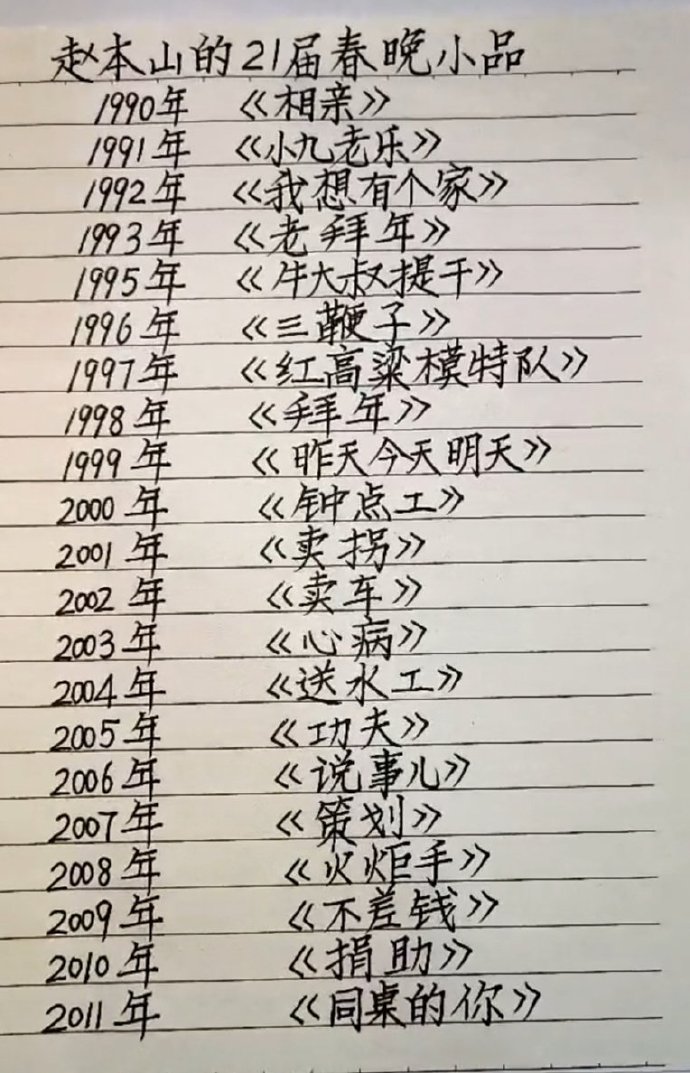 赵本山的21届春晚小品
1990年 《相亲》
1991年 《小九老乐》
1992年 《我想有个家》
1993年 《老拜年》
1995年 《牛大叔提干》
1996年 《三鞭子》
1997年 《红高粱模特队》
1998年 《拜年》
1999年 《昨天今天明天》
2000年 《钟点工》
2001年 《卖拐》
2002年 《卖车》
2003年 《心病》
2004年 《送水工》
2005年 《功夫》
2006年 《说事儿》
2007年 《策划》
2008年 《火炬手》
2009年 《不差钱》
2010年 《捐助》
2011年 《同桌的你》